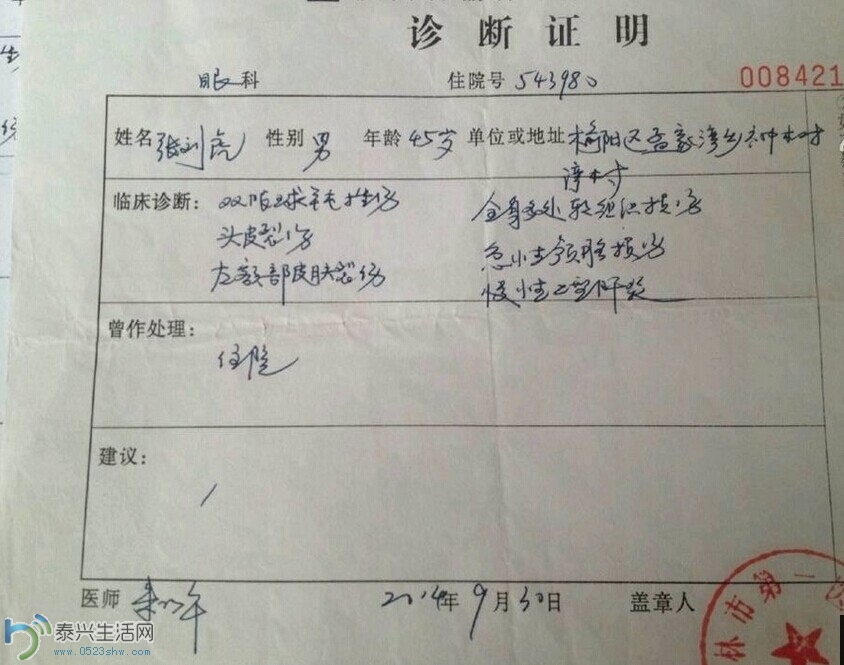 诊断证明
眼科 住院号 543980 008421
姓名 张刘虎 性别 男 年龄 45岁 单位或地址 榆阳区孟家湾乡
湾村
临床诊断: 双眼球钝挫伤 全身多处软组织损伤
头皮裂伤 急性颅脑损伤
左额部皮肤裂伤 慢性乙型肝炎
曾作处理:
住院
建议:
/
医师 2014年9月30日 盖章人
林市第一
泰兴生活网
www.0523shw.com